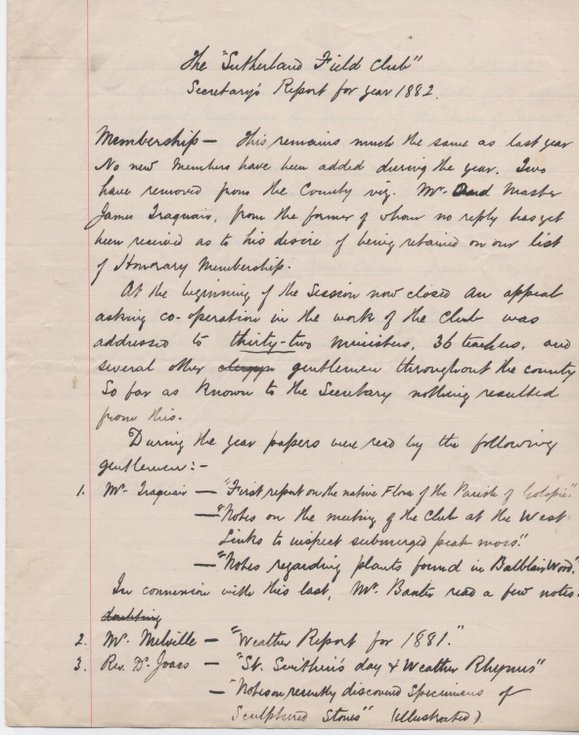 The "Sutherland Field Club"
Secretary's Report for year 1882.
Membership — This remains much the same as last year
No new Members have been added during the year. Two
have removed from the County viz. Mr. and Master
James Traquair, from the former of whom no reply has yet
been received as to his desire of being retained on our list
of Honorary Membership.
At the beginning of the Session now closed an appeal
asking co-operation in the work of the Club was
addressed to thirty-two Ministers, 36 teachers, and
several other gentlemen throughout the county
So far as known to the Secretary nothing resulted
from this.
During the year papers were read by the following
gentlemen:-
1. Mr. Traquair — "First report on the native Flora of the Parish of Golspie."
— "Notes on the meeting of the Club at the West
Links to inspect submerged peat moss."
— "Notes regarding plants found in Balblair Wood."
In connexion with this last, Mr. Baxter read a few notes.
2. Mr. Melville — "Weather Report for 1881."
3. Rev. Dr. Joass — "St. Swithin's day & Weather Rhymes"
— "Notes on recently discovered specimens of
Sculptured Stones" (illustrated)